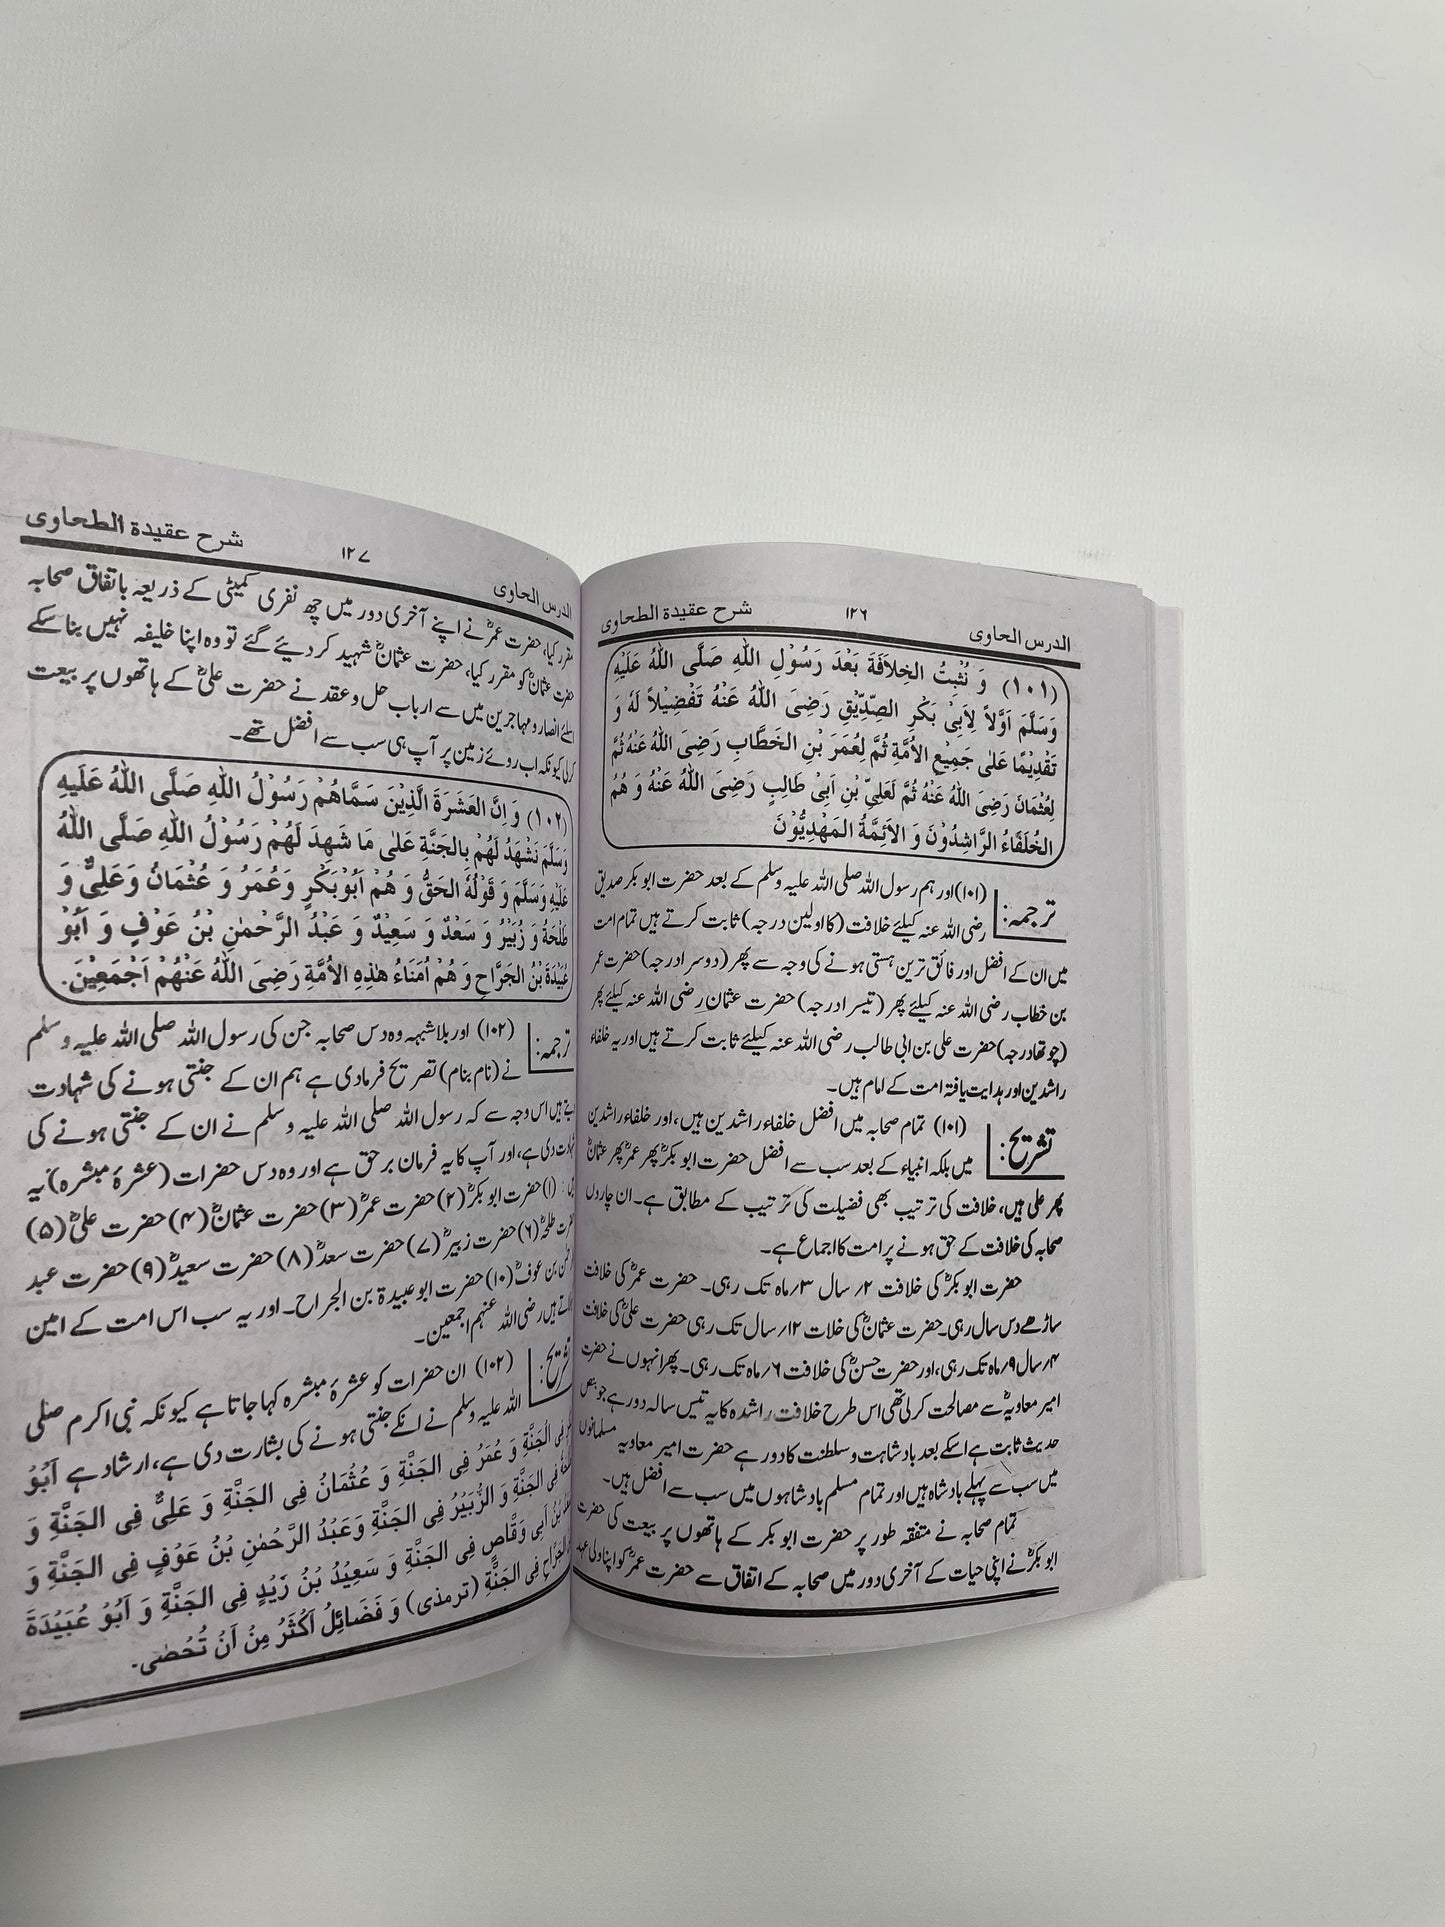 الدرس الحاوی ۱۲۶ شرح عقیدة الطحاوی
(۱۰۱) وَ نُثْبِتُ الخِلَافَةَ بَعْدَ رَسُوْلِ اللهِ صَلَّى اللهُ عَلَيْهِ
وَسَلَّمَ اَوَّلاً لِاَبِىْ بَكْرِ الصِّدِّيْقِ رَضِىَ اللهُ عَنْهُ تَفْضِيْلاً لَهٗ وَ
تَقْدِيْمًا عَلٰى جَمِيْعِ الاُمَّةِ ثُمَّ لِعُمَرَ بْنِ الخَطَّابِ رَضِىَ اللهُ عَنْهُ ثُمَّ
لِعُثْمَانَ رَضِىَ اللهُ عَنْهُ ثُمَّ لَعَلِىِّ بْنِ اَبِىْ طَالِبٍ رَضِىَ اللهُ عَنْهُ وَ هُمُ
الخُلَفَاءُ الرَّاشِدُوْنَ وَ الاَئِمَّةُ المَهْدِيُّوْنَ
ترجمہ: (۱۰۱) اور ہم رسول اللہ صلی اللہ علیہ وسلم کے بعد حضرت ابو بکر صدیق
رضی اللہ عنہ کیلئے خلافت (کا اولین درجہ) ثابت کرتے ہیں تمام امت
میں ان کے افضل اور فائق ترین ہستی ہونے کی وجہ سے پھر (دوسرا درجہ) حضرت عمر
بن خطاب رضی اللہ عنہ کیلئے پھر (تیسرا درجہ) حضرت عثمان رضی اللہ عنہ کیلئے پھر
(چوتھا درجہ) حضرت علی بن ابی طالب رضی اللہ عنہ کیلئے ثابت کرتے ہیں اور یہ خلفاء
راشدین اور ہدایت یافتہ امت کے امام ہیں۔
تشریح: (۱۰۱) تمام صحابہ میں افضل خلفاء راشدین ہیں، اور خلفاء راشدین
میں بلکہ انبیاء کے بعد سب سے افضل حضرت ابو بکرؓ پھر عمرؓ پھر عثمانؓ
پھر علی ہیں، خلافت کی ترتیب بھی فضیلت کی ترتیب کے مطابق ہے۔ ان چاروں
صحابہ کی خلافت کے حق ہونے پر امت کا اجماع ہے۔
حضرت ابو بکرؓ کی خلافت ۲/ سال ۳/ماہ تک رہی۔ حضرت عمرؓ کی خلافت
ساڑھے دس سال رہی۔ حضرت عثمانؓ کی خلات ۱۲/سال تک رہی حضرت علیؓ کی خلافت
۴/سال ۹/ماہ تک رہی، اور حضرت حسنؓ کی خلافت ۶/ماہ تک رہی۔ پھر انہوں نے حضرت
امیر معاویہؓ سے مصالحت کر لی تھی اس طرح خلافت راشدہ کا یہ تیس سالہ دور ہے جو بنص
حدیث ثابت ہے اسکے بعد بادشاہت و سلطنت کا دور ہے حضرت امیر معاویہ مسلمانوں
میں سب سے پہلے بادشاہ ہیں اور تمام مسلم بادشاہوں میں سب سے افضل ہیں۔
تمام صحابہ نے متفقہ طور پر حضرت ابو بکر کے ہاتھوں پر بیعت کی حضرت
ابو بکرؓ نے اپنی حیات کے آخری دور میں صحابہ کے اتفاق سے حضرت عمرؓ کو اپنا ولی عہد
الدرس الحاوی ۱۲۷ شرح عقیدة الطحاوی
مقرر کیا، حضرت عمرؓ نے اپنے آخری دور میں چھ نفری کمیٹی کے ذریعہ باتفاق صحابہ
حضرت عثمانؓ کو مقرر کیا، حضرت عثمانؓ شہید کر دیئے گئے تو وہ اپنا خلیفہ نہیں بنا سکے
اسلئے انصار و مہاجرین میں سے ارباب حل و عقد نے حضرت علیؓ کے ہاتھوں پر بیعت
کر لی کیونکہ اب روئے زمین پر آپ ہی سب سے افضل تھے۔
(۱۰۲) وَ اِنَّ العَشَرَةَ الَّذِيْنَ سَمَّاهُمْ رَسُوْلُ اللهِ صَلَّى اللهُ عَلَيْهِ
وَسَلَّمَ نَشْهَدُ لَهُمْ بِالجَنَّةِ عَلٰى مَا شَهِدَ لَهُمْ رَسُوْلُ اللهِ صَلَّى اللهُ
عَلَيْهِ وَسَلَّمَ وَ قَوْلُهُ الحَقُّ وَ هُمْ اَبُوْبَكْرٍ وَعُمَرُ وَ عُثْمَانُ وَعَلِىٌّ وَ
طَلْحَةُ وَ زُبَيْرُ وَ سَعْدٌ وَ سَعِيْدٌ وَ عَبْدُ الرَّحْمٰنِ بْنُ عَوْفٍ وَ اَبُوْ
عُبَيْدَةَ بْنُ الجَرَّاحِ وَ هُمْ اُمَنَاءُ هٰذِهِ الاُمَّةِ رَضِىَ اللهُ عَنْهُمْ اَجْمَعِيْنَ.
ترجمہ: (۱۰۲) اور بلا شبہہ وہ دس صحابہ جن کی رسول اللہ صلی اللہ علیہ وسلم
نے (نام بنام) تصریح فرمادی ہے ہم ان کے جنتی ہونے کی شہادت
دیتے ہیں اس وجہ سے کہ رسول اللہ صلی اللہ علیہ وسلم نے ان کے جنتی ہونے کی
شہادت دی ہے، اور آپ کا یہ فرمان برحق ہے اور وہ دس حضرات (عشرۂ مبشرہ) یہ
ہیں: (۱) حضرت ابو بکرؓ (۲) حضرت عمرؓ (۳) حضرت عثمانؓ (۴) حضرت علیؓ (۵)
حضرت طلحہؓ (۶) حضرت زبیرؓ (۷) حضرت سعدؓ (۸) حضرت سعیدؓ (۹) حضرت عبد
بن عوفؓ (۱۰) حضرت ابو عبیدة بن الجراح۔ اور یہ سب اس امت کے امین
ہیں رضی اللہ عنہم اجمعین۔
تشریح: (۱۰۲) ان حضرات کو عشرۂ مبشرہ کہا جاتا ہے کیونکہ نبی اکرم صلی
اللہ علیہ وسلم نے انکے جنتی ہونے کی بشارت دی ہے، ارشاد ہے اَبُوْ
فِى الجَنَّةِ وَ عُمَرُ فِى الجَنَّةِ وَ عُثْمَانُ فِى الجَنَّةِ وَ عَلِىٌّ فِى الجَنَّةِ وَ
فِى الجَنَّةِ وَ الزُّبَيْرُ فِى الجَنَّةِ وَعَبْدُ الرَّحْمٰنِ بْنُ عَوْفٍ فِى الجَنَّةِ وَ
بْنُ اَبِى وَقَّاصٍ فِى الجَنَّةِ وَ سَعِيْدُ بْنُ زَيْدٍ فِى الجَنَّةِ وَ اَبُوْ عُبَيْدَةَ
الجَرَّاحِ فِى الجَنَّةِ (ترمذی) وَ فَضَائِلُ اَكْثَرُ مِنْ اَنْ تُحْصٰى.